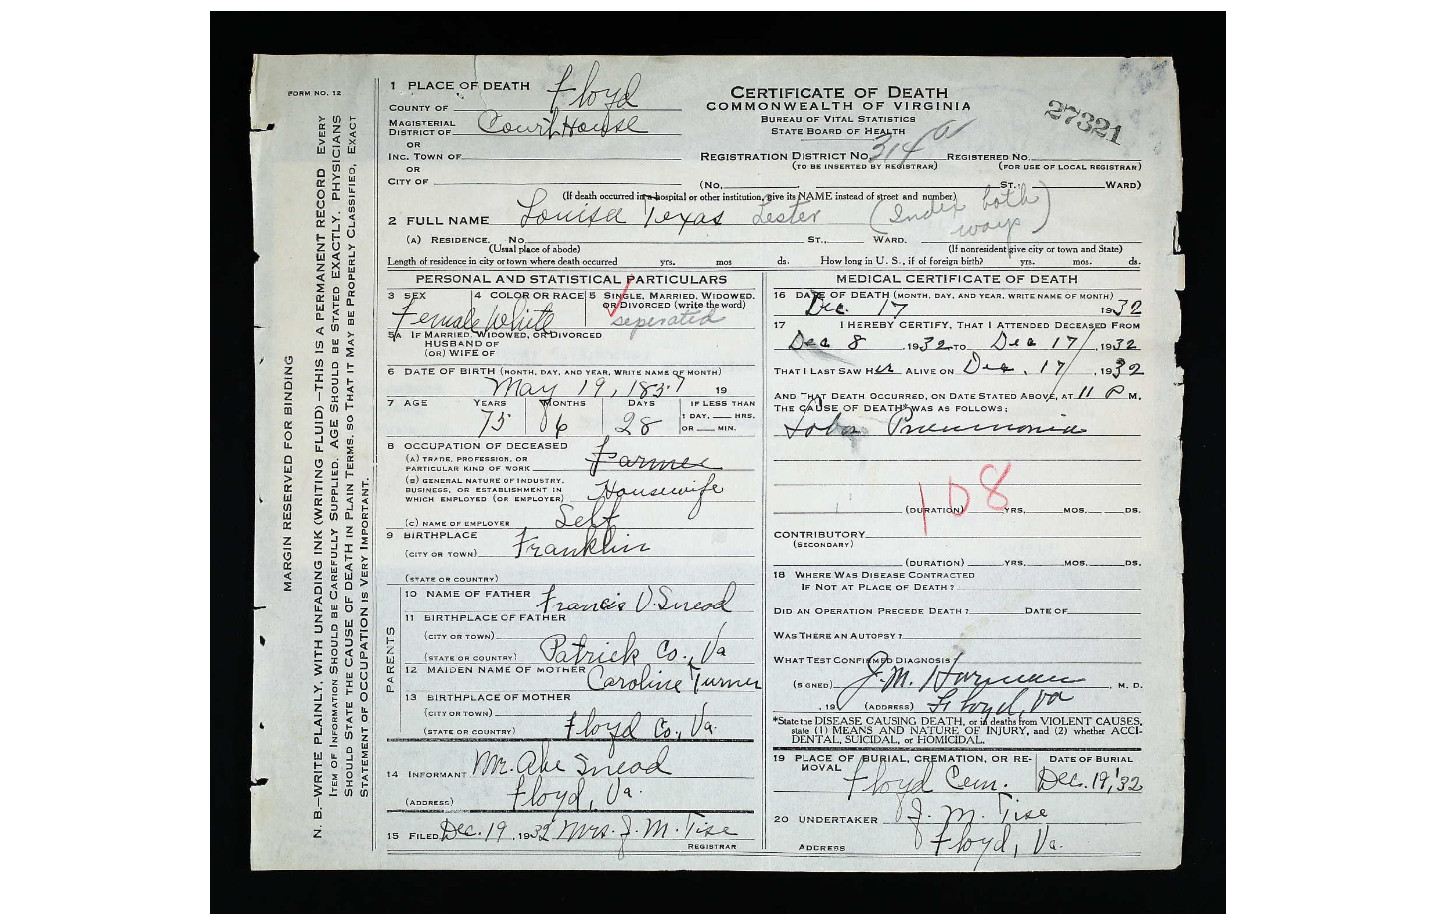 FORM NO. 12
MARGIN RESERVED FOR BINDING
N. B.—WRITE PLAINLY, WITH UNFADING INK (WRITING FLUID)—THIS IS A PERMANENT RECORD EVERY
ITEM OF INFORMATION SHOULD BE CAREFULLY SUPPLIED. AGE SHOULD BE STATED EXACTLY. PHYSICIANS
SHOULD STATE THE CAUSE OF DEATH IN PLAIN TERMS, SO THAT IT MAY BE PROPERLY CLASSIFIED, EXACT
STATEMENT OF OCCUPATION IS VERY IMPORTANT.
1 PLACE OF DEATH
COUNTY OF Floyd
MAGISTERIAL
DISTRICT OF Court House
OR
INC. TOWN OF
OR
CITY OF
CERTIFICATE OF DEATH
COMMONWEALTH OF VIRGINIA
BUREAU OF VITAL STATISTICS
STATE BOARD OF HEALTH
27321
REGISTRATION DISTRICT NO. 314 a REGISTERED NO.
(TO BE INSERTED BY REGISTRAR) (FOR USE OF LOCAL REGISTRAR)
(No. ST.; WARD)
(If death occurred in a hospital or other institution, give its NAME instead of street and number)
2 FULL NAME Louisa Texas Lester (Index both ways)
(A) RESIDENCE. No. ST., WARD.
(Usual place of abode) (If nonresident give city or town and State)
Length of residence in city or town where death occurred yrs. mos ds. How long in U. S., if of foreign birth? yrs. mos. ds.
PERSONAL AND STATISTICAL PARTICULARS
3 SEX 4 COLOR OR RACE 5 SINGLE, MARRIED, WIDOWED,
OR DIVORCED (write the word)
Female White seperated
5A IF MARRIED, WIDOWED, OR DIVORCED
HUSBAND OF
(OR) WIFE OF
6 DATE OF BIRTH (MONTH, DAY, AND YEAR, WRITE NAME OF MONTH)
May 19, 1857 19
7 AGE YEARS MONTHS DAYS IF LESS THAN
1 DAY, HRS.
OR MIN.
75 6 28
8 OCCUPATION OF DECEASED
(A) TRADE, PROFESSION, OR
PARTICULAR KIND OF WORK Farmer
(B) GENERAL NATURE OF INDUSTRY,
BUSINESS, OR ESTABLISHMENT IN
WHICH EMPLOYED (OR EMPLOYER) Housewife
(C) NAME OF EMPLOYER Self
9 BIRTHPLACE
(CITY OR TOWN) Franklin
(STATE OR COUNTRY)
PARENTS
10 NAME OF FATHER Francis V. Snead
11 BIRTHPLACE OF FATHER
(CITY OR TOWN)
(STATE OR COUNTRY) Patrick Co., Va
12 MAIDEN NAME OF MOTHER Caroline Turner
13 BIRTHPLACE OF MOTHER
(CITY OR TOWN)
(STATE OR COUNTRY) Floyd Co., Va.
14 INFORMANT Mr. Abe Snead
(ADDRESS) Floyd, Va.
15 FILED Dec. 19, 1932 Mrs. J. M. Tise
REGISTRAR
MEDICAL CERTIFICATE OF DEATH
16 DATE OF DEATH (MONTH, DAY, AND YEAR, WRITE NAME OF MONTH)
Dec. 17 1932
17 I HEREBY CERTIFY, THAT I ATTENDED DECEASED FROM
Dec 8, 1932 TO Dec 17, 1932
THAT I LAST SAW HER ALIVE ON Dec. 17, 1932
AND THAT DEATH OCCURRED, ON DATE STATED ABOVE, AT 11 P M.
THE CAUSE OF DEATH* WAS AS FOLLOWS:
Lobar Pneumonia
108
(DURATION) YRS. MOS. DS.
CONTRIBUTORY
(SECONDARY)
(DURATION) YRS. MOS. DS.
18 WHERE WAS DISEASE CONTRACTED
IF NOT AT PLACE OF DEATH?
DID AN OPERATION PRECEDE DEATH? DATE OF
WAS THERE AN AUTOPSY?
WHAT TEST CONFIRMED DIAGNOSIS
(SIGNED) J. M. Harman, M. D.
, 19 (ADDRESS) Floyd, Va
*State the DISEASE CAUSING DEATH, or in deaths from VIOLENT CAUSES,
state (1) MEANS AND NATURE OF INJURY, and (2) whether ACCI-
DENTAL, SUICIDAL, or HOMICIDAL.
19 PLACE OF BURIAL, CREMATION, OR RE- DATE OF BURIAL
MOVAL Floyd Cem. Dec. 19, '32
20 UNDERTAKER J. M. Tise
ADDRESS Floyd, Va.